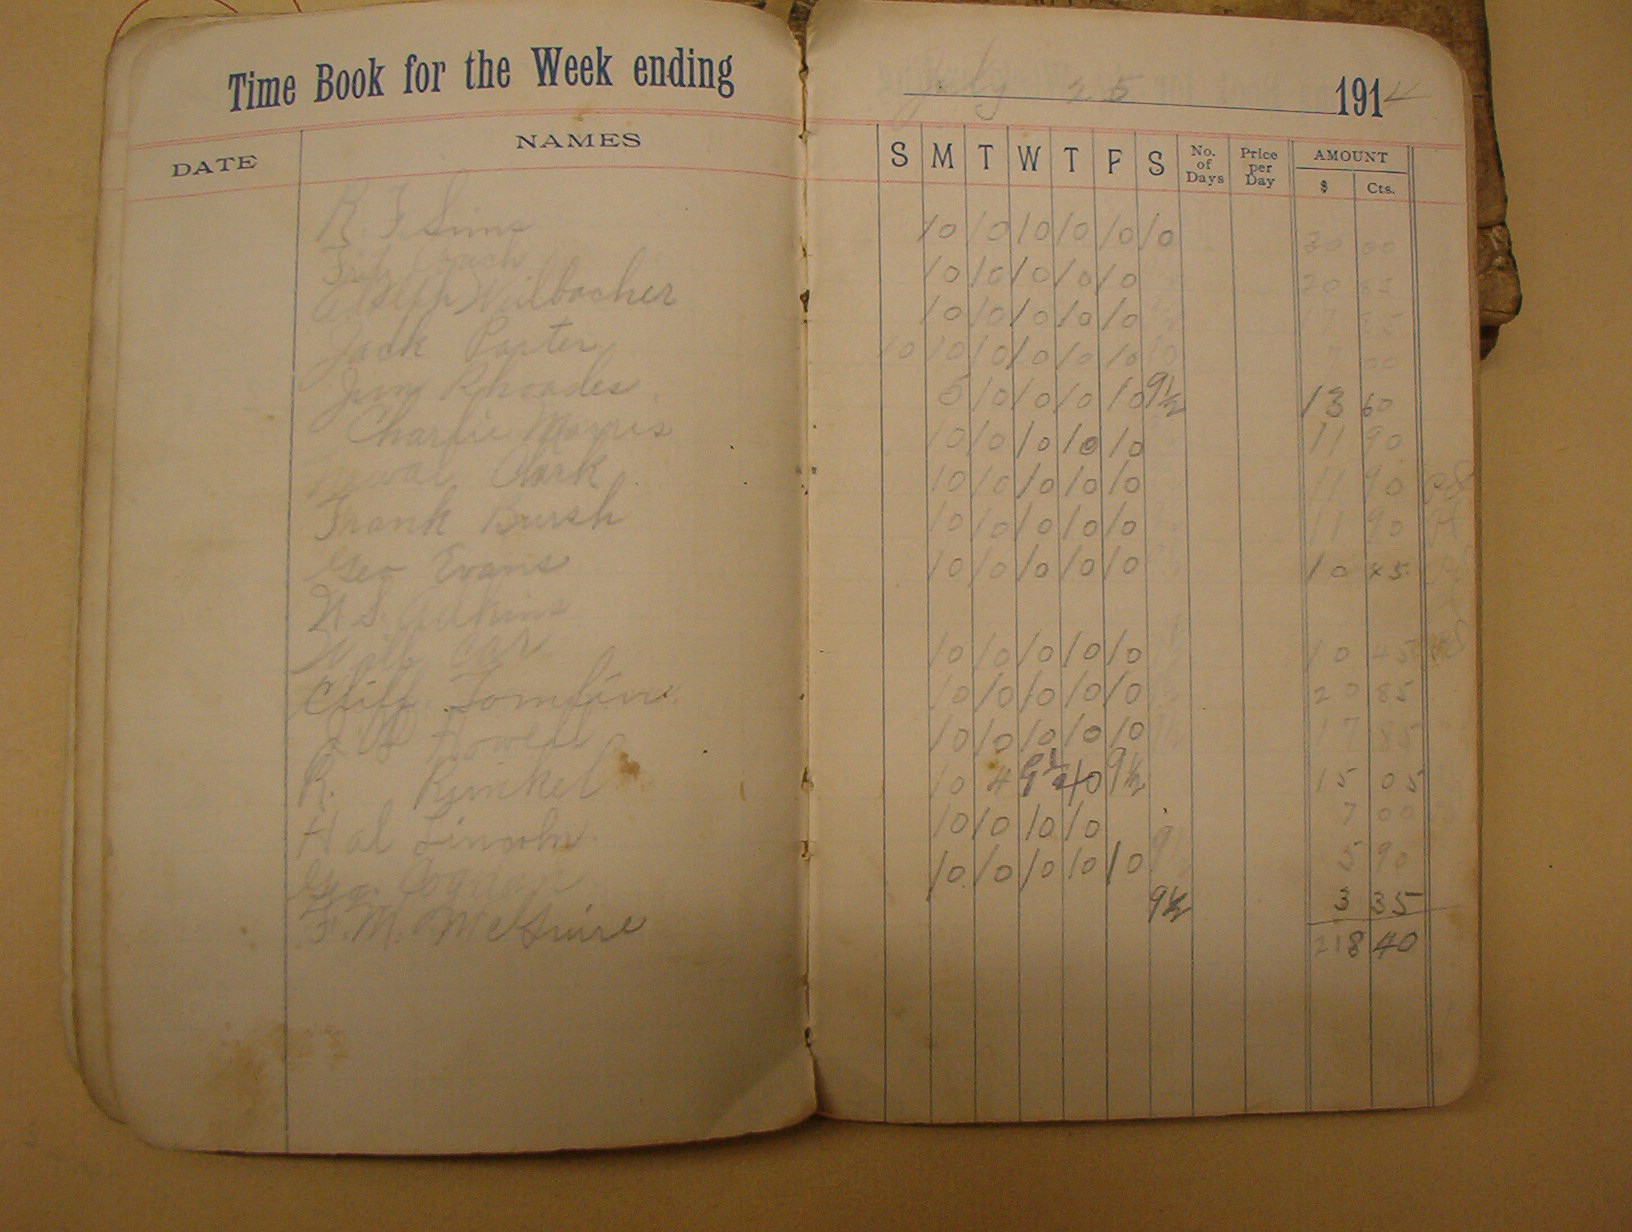 Time Book for the Week ending July 25 1914
DATE NAMES S M T W T F S No. of Days Price per Day AMOUNT $ Cts.
R. F. Sims 10 10 10 10 10 10 30 00
Fritz 10 10 10 10 10 20
Milbacher 10 10 10 10 10 17
Jack Porter 10 10 10 10 10 10 10 7 00
Jim Rhoades 5 10 10 10 10 9½ 13 60
Charlie 10 10 10 10 10 11 90
Clark 10 10 10 10 10 11 90
Frank Bursh 10 10 10 10 10 11 90
Geo Evans 10 10 10 10 10 10 45
W. S. Adkins
Car 10 10 10 10 10 10 45
Cliff Tomlin 10 10 10 10 10 20 85
Howell 10 10 10 10 10 17 85
R. Runkel 10 4 9½ 10 9½ 15 05
Hal Lincoln 10 10 10 10 7 00
Geo. 10 10 10 10 10 5 90
F. M. McGuire 9½ 3 35
218 40